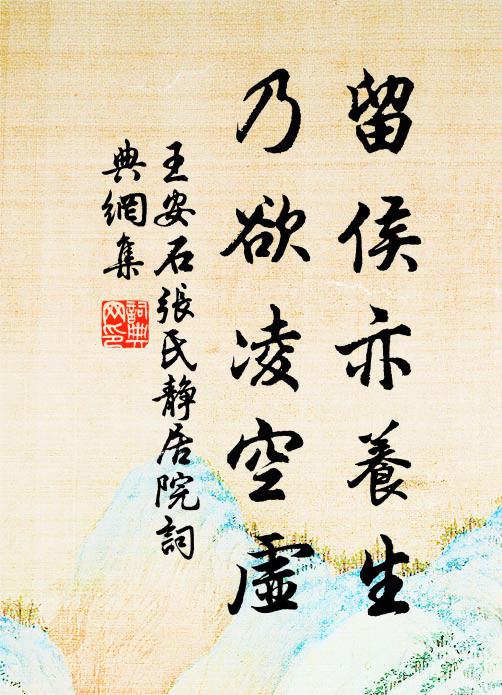 留侯亦養生
乃欲凌空虛
王安石張氏静居院詞
典網集
詞典
网印